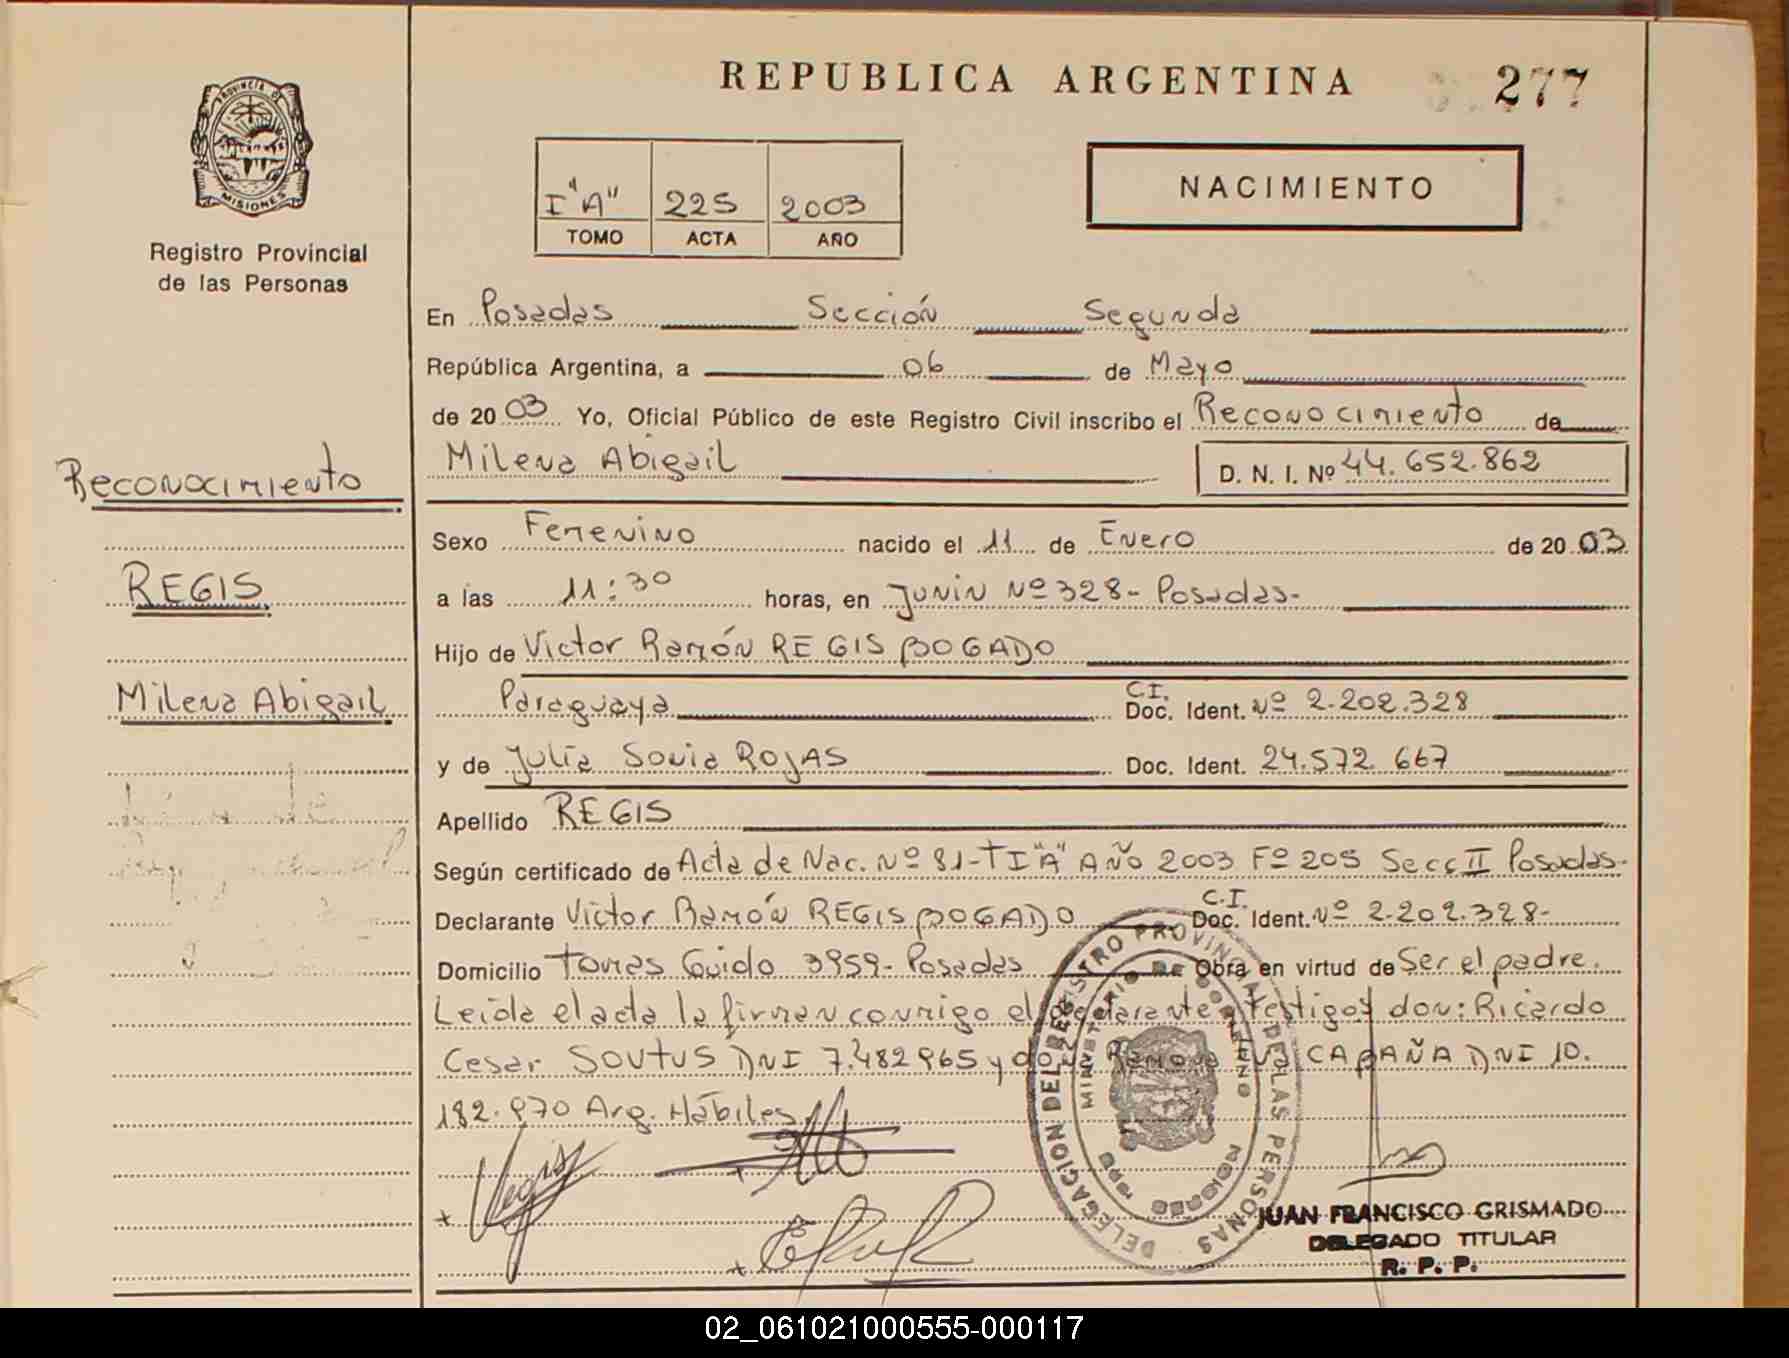 REPUBLICA ARGENTINA
277
PROVINCIA DE
MISIONES
Registro Provincial
de las Personas
I "A" 225 2003
TOMO ACTA AÑO
NACIMIENTO
En Posadas Sección Segunda
República Argentina, a 06 de Mayo
de 20 03 Yo, Oficial Público de este Registro Civil inscribo el Reconocimiento de
Milena Abigail D. N. I. Nº 44.652.862
Reconocimiento
Sexo Femenino nacido el 11 de Enero de 20 03
REGIS
a las 11:30 horas, en Junin Nº 328- Posadas-
Hijo de Victor Ramón REGIS BOGADO
Milena Abigail
Paraguaya C.I. Doc. Ident. Nº 2.202.328
y de Julia Sonia ROJAS Doc. Ident. 24.572.667
Apellido REGIS
Según certificado de Acta de Nac. Nº 81-T I "A" Año 2003 Fº 205 Secc II Posadas-
Declarante Victor Ramón REGIS BOGADO C.I. Doc. Ident. Nº 2.202.328-
Domicilio Tomas Guido 3959- Posadas Obra en virtud de Ser el padre.
Leida el acta la firman conmigo el declarante y testigos don: Ricardo
Cesar SOUTUS DNI 7.482965 y doña Ramona CABAÑA DNI 10.
182.970 Arg. Hábiles
DELEGACION DEL REGISTRO PROVINCIAL DE LAS PERSONAS
MINISTERIO DE GOBIERNO
JUAN FRANCISCO GRISMADO
DELEGADO TITULAR
R. P. P.
02_061021000555-000117